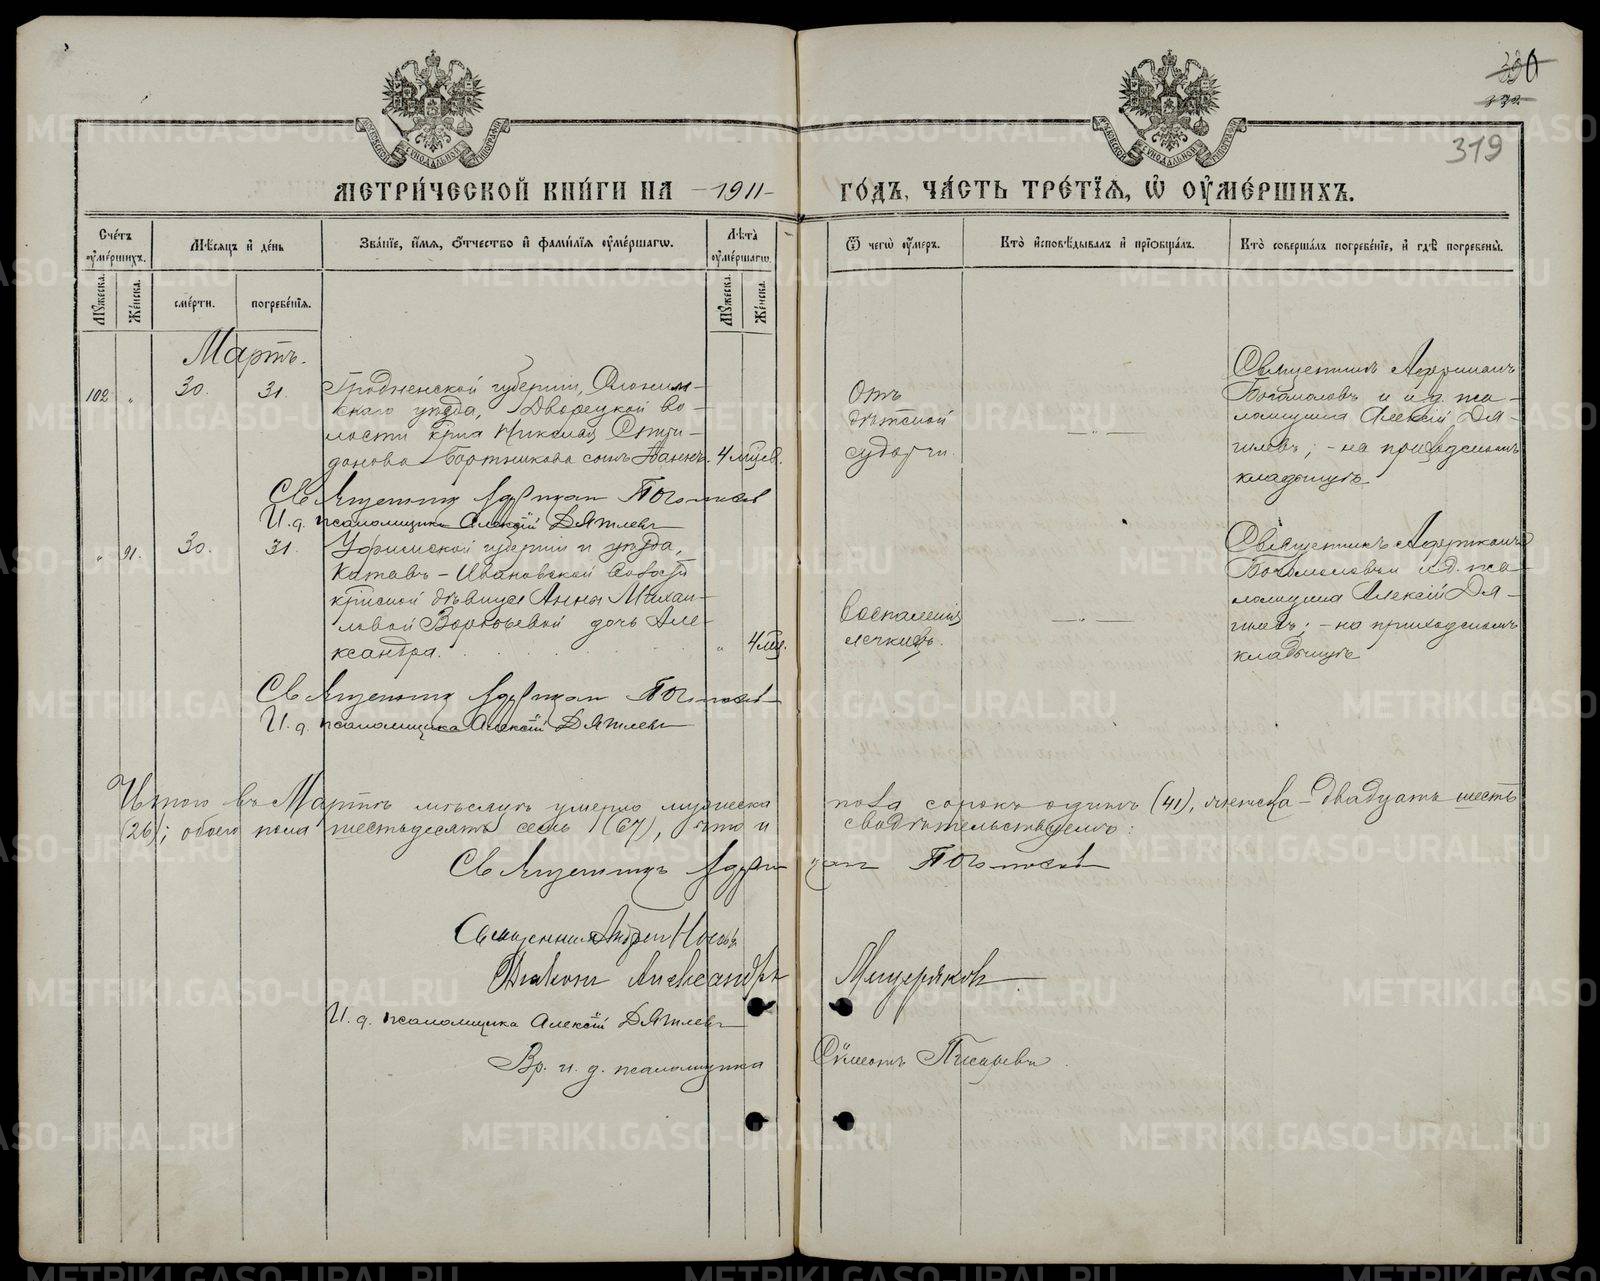 330
319
МЕТРИ́ЧЕСКОЙ КНИ́ГИ НА 1911 ГО́ДЪ, ЧА́СТЬ ТРЕ́ТЇѦ, Ѽ ОУ҆МЕ́РШИХЪ.
Сче́тъ оу҆ме́ршихъ.
Мѣ́сѧцъ и҆ де́нь
Зва́нїе, и҆́мѧ, ѻ҆́тчество и҆ фами́лїѧ оу҆ме́ршагѡ.
Лѣ́та оу҆ме́ршагѡ.
Ѿ чегѡ̀ оу҆́меръ.
Кто̀ и҆сповѣ́дывалъ и҆ прїѻбща́лъ.
Кто̀ соверша́лъ погребе́нїе, и҆ гдѣ̀ погребены̀.
Мꙋ́жеска.
Же́нска.
сме́рти.
погребе́нїѧ.
Мꙋ́жеска.
Же́нска.
Мартъ.
102 " 30. 31.
Гродненской губерніи, Слоним-
скаго уѣзда, Дворецкой во-
лости кр-на Николая
Бортникова сынъ Іоаннъ. 4 мѣсяц.
Отъ
дѣтской
судороги.
— " —
Священникъ Адріанъ
Богомоловъ и и. д. пса-
ломщика Алексій Дя-
тлевъ; - на приходскомъ
кладбищѣ
Священникъ Адріанъ Богомоловъ
И. д. псаломщика Алексій Дятлевъ
" 91. 30. 31.
Уфимской губерніи и уѣзда,
Катавъ-Ивановской волости
кр-нской дѣвицы Анны Михаи-
ловой Воробьевой дочь Але-
ксандра. " 4 мѣс.
Воспаленія
легкихъ.
— " —
Священникъ Адріанъ
Богомоловъ и и. д. пса-
ломщика Алексій Дя-
тлевъ; - на приходскомъ
кладбищѣ
Священникъ Адріанъ Богомоловъ
И. д. псаломщика Алексій Дятлевъ
Итого въ Мартѣ мѣсяцѣ умерло мужеска пола сорокъ одинъ (41), женска - двадцать шесть
(26); обоего пола шестьдесятъ семь (67), что и свидѣтельствуемъ:
Священникъ Адріанъ Богомоловъ
Священникъ Андрей Носовъ
Діаконъ Александръ Мещеряковъ
И. д. псаломщика Алексій Дятлевъ
Вр. и. д. псаломщика Симеонъ Писаревъ.
METRIKI.GASO-URAL.RU